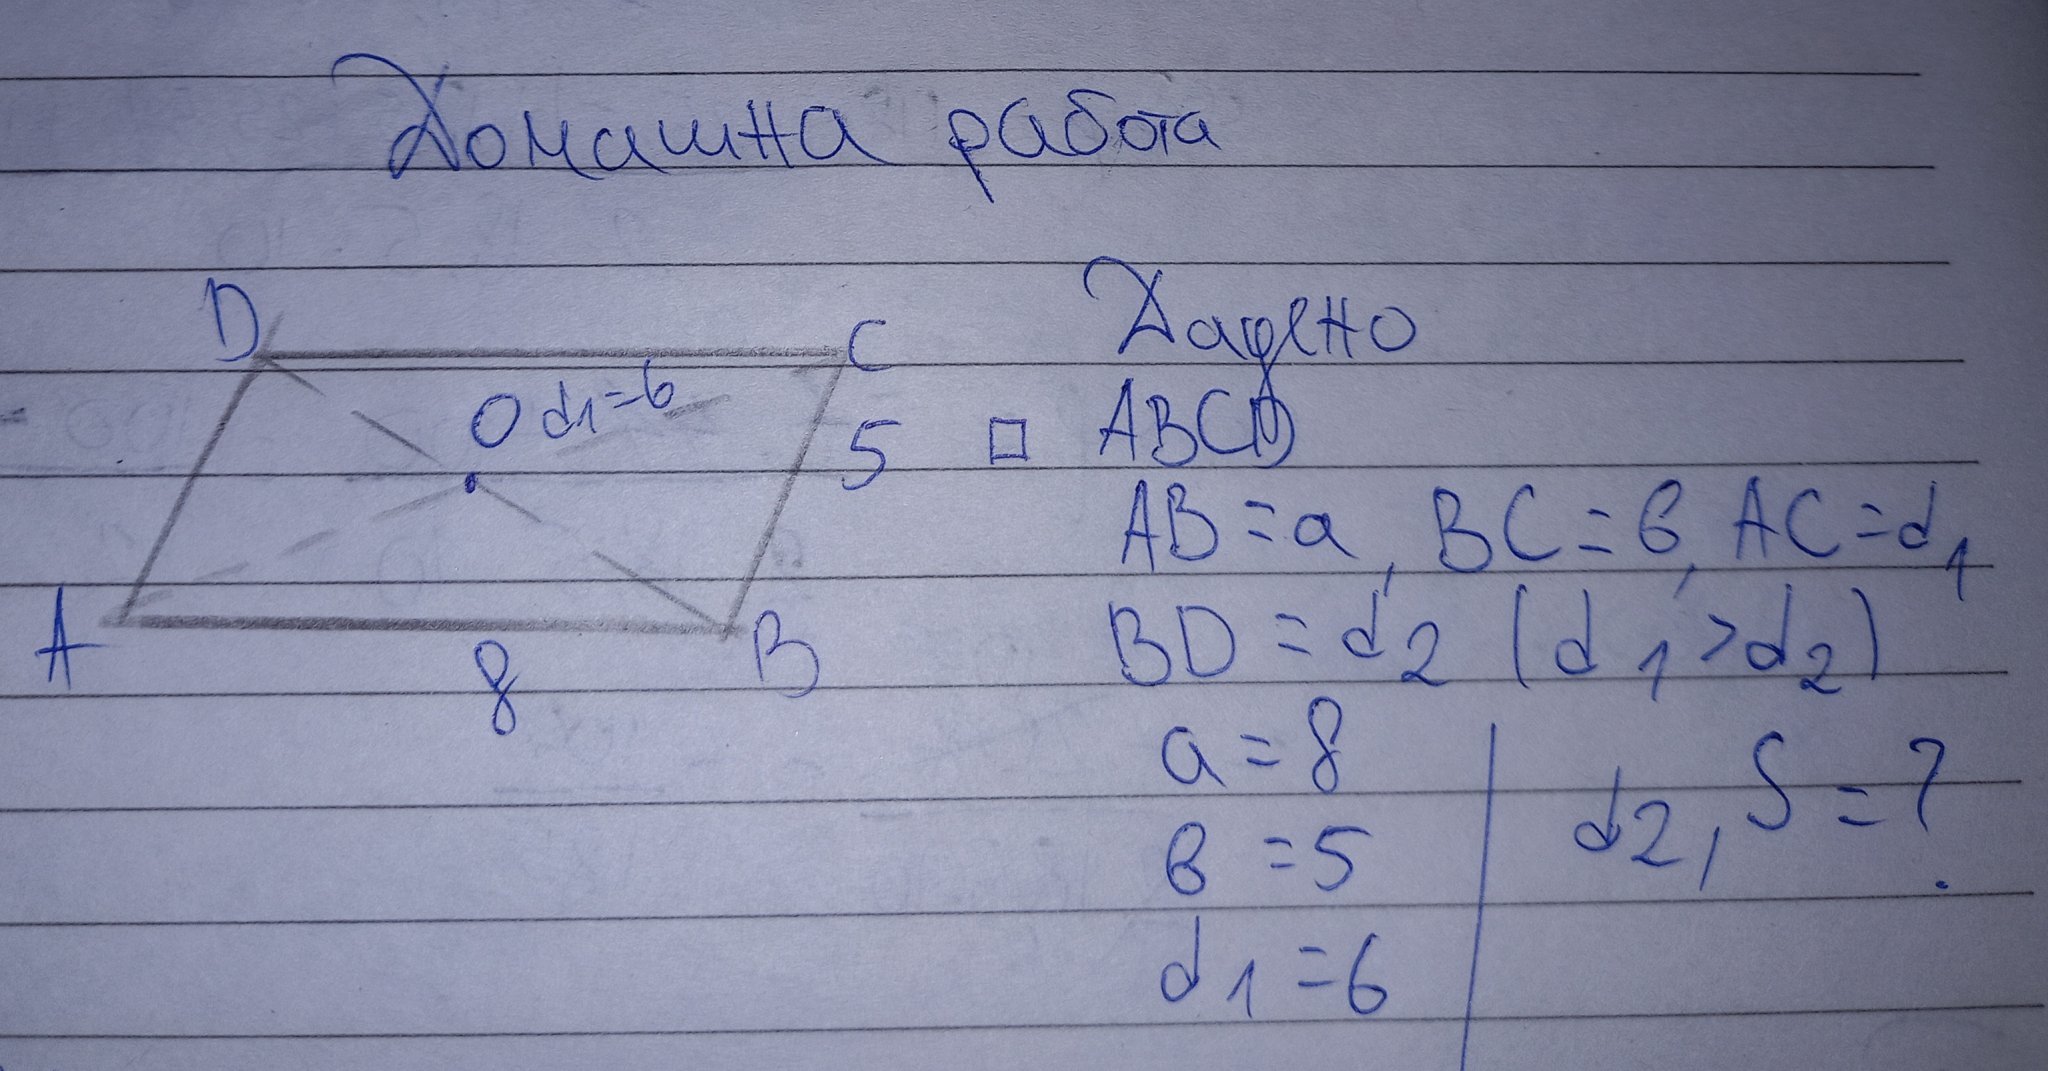 Домашна работа
D
C
O d1=6
5
A
8
B
Дадено
□ ABCD
AB=a, BC=в, AC=d1
BD=d2 (d1>d2)
a=8
в=5
d1=6
d2, S=?